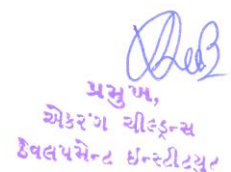 પ્રમુખ,
એકરંગ ચીલ્ડ્રન્સ
ડેવલપમેન્ટ ઇન્સ્ટીટયુટ